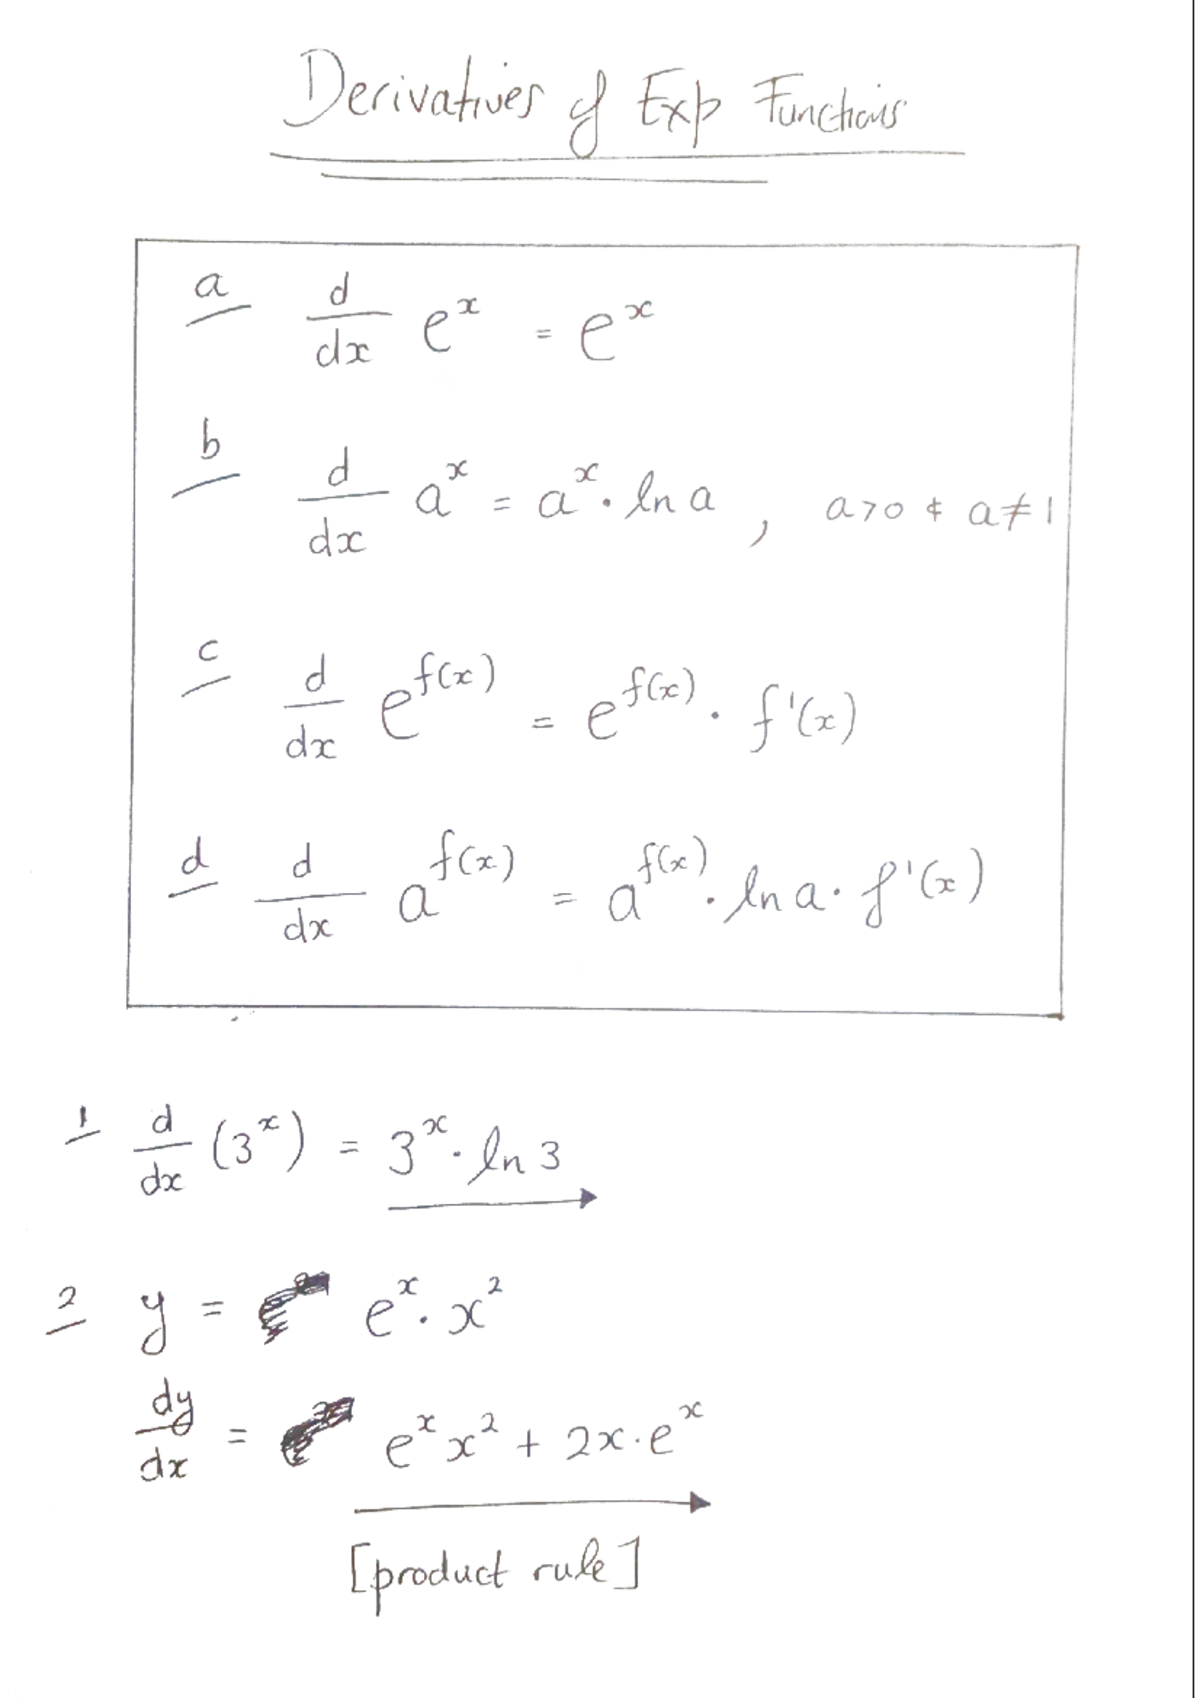 Derivatives of Exp Functions
a d/dx e^x = e^x
b d/dx a^x = a^x · ln a , a>0 & a≠1
c d/dx e^f(x) = e^f(x) · f'(x)
d d/dx a^f(x) = a^f(x) · ln a · f'(x)
1 d/dx (3^x) = 3^x · ln 3
2 y = e^x · x^2
dy/dx = e^x x^2 + 2x · e^x
[product rule]